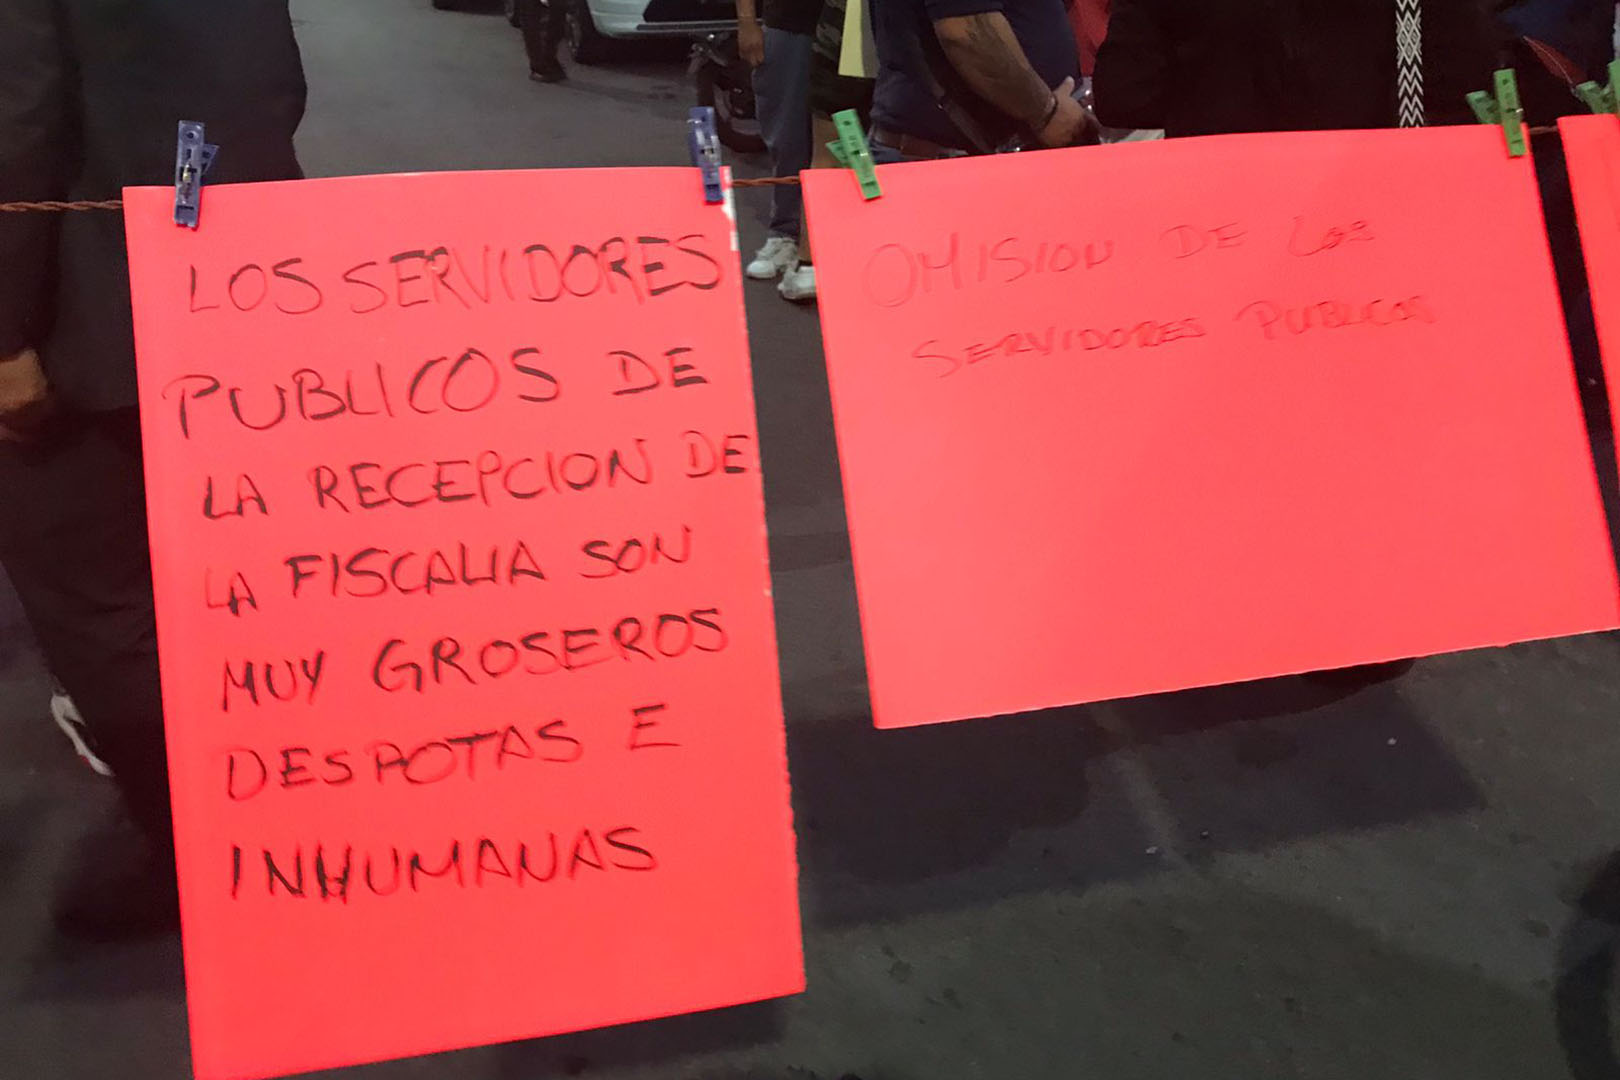 LOS SERVIDORES
PUBLICOS DE
LA RECEPCION DE
LA FISCALIA SON
MUY GROSEROS
DESPOTAS E
INHUMANAS
OMISION DE LOS
SERVIDORES PUBLICOS